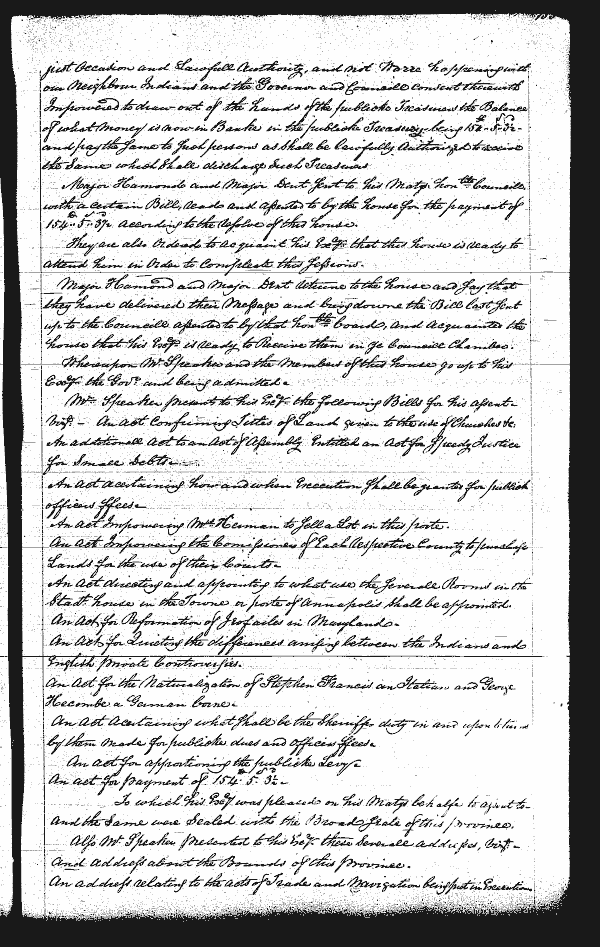 just Occasion and Lawfull Authority, and not Warre happening with
our Neighbour Indians and the Governor and Councill consent therewith
Impowered to draw out of the hands of the publicke Treasurers the Balance
of what money is now in Banke in the publicke Treasury being 154. 5. 3½
and pay the Same to Such persons as Shall be Lawfully Authorized to receive
the Same which Shall discharge Such Treasurers
Major Hamond and Major Dent Sent to his Matys honble Councill
with a certain Bill, Read and assented to by the house for the payment of
154. 5. 3½ according to the resolve of this house.
They are also Ordered to acquaint his Exy. that this house is ready to
attend him in Order to Compleate this Sessions.
Major Hamond and Major Dent returne to the house and Say that
they have delivered their Message and being downe the Bill last Sent
up to the Councill assented to by that honble board, and acquainted the
house that his Exy. is ready to Receive them in ye Councill Chamber.
Whereupon Mr Speaker and the Members of this house go up to his
Exy. the Govr. and being admitted
Mr. Speaker present to his Exy. the following Bills for his assent
vizt. An Act Confirming Titles of Land given to the use of Churches &c.
An additionall Act to an Act of Assembly Entitled an Act for Speedy Justice
for Small Debts
An Act ascertaining how and when Execution Shall be granted for publick
officers ffees
An Act Impowering Mr Herman to Sell a Lot in this porte.
An Act Impowering the Comissioners of Each respective County to purchase
Lands for the use of their Courts
An Act directing and appointing to what use the Severall Rooms in the
Stadt house in the Towne or porte of Annapolis Shall be appointed.
An Act for Reformation of Jeofailes in Maryland
An Act for Quieting the differences arrising between the Indians and
English private Controversies.
An Act for the Naturalization of Stephen Francis an Italian and George
Hecombe a German borne
An Act Ascertaining what Shall be the Sheriffs duty in and upon
by them made for publicke dues and officers ffees
An act for apportioning the publicke Levy
An act for payment of 154. 5. 3½
To which his Exy was pleased on his Matys behalfe to assent to
and the Same were Sealed with the Broad Seale of this province.
Also Mr Speaker presented to his Exy. these Severall addresses, vizt
and address about the Bounds of this province.
An address relating to the acts of Trade and Navigation being put in Execution